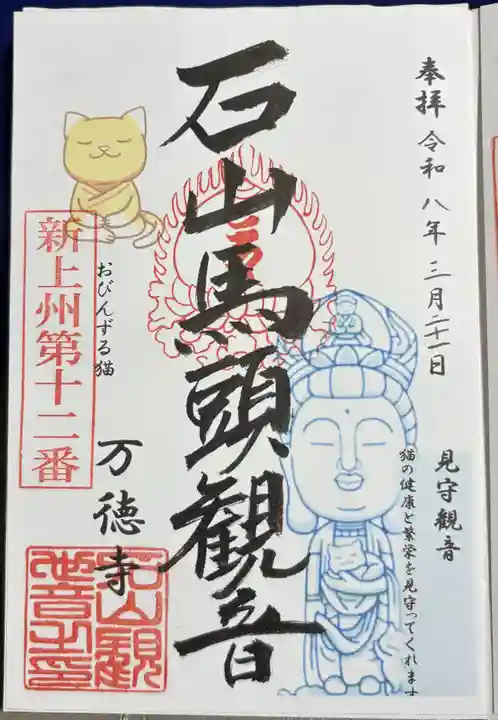 奉拝 令和八年三月二十一日
見守観音
猫の健康と繁栄を見守ってくれます
石山馬頭観音
おびんずる猫
新上州第十二番
万徳寺